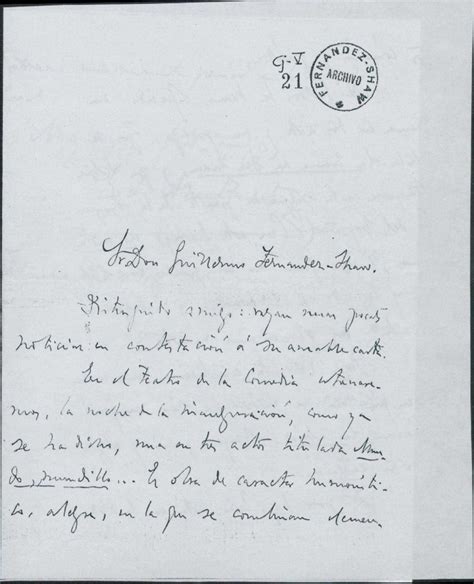 G-V
21
FERNANDEZ-SHAW
ARCHIVO
Sr Don Guillermo Fernandez-Shaw.
Distinguido amigo: vayan unas pocas
noticias en contestación á su amable carta.
En el Teatro de la Comedia estrenare-
mos, la noche de la inauguración, como ya
se ha dicho, una en tres actos titulada Mun-
do, mundillo... Es obra de caracter humorísti-
co, alegre, en la que se combinan elemen-